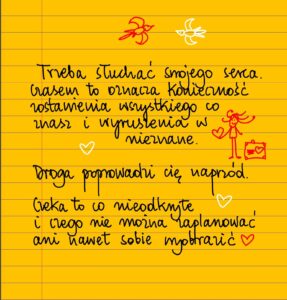 Trzeba słuchać swojego serca.
Czasem to oznacza konieczność
zostawienia wszystkiego co
znasz i wyruszenia w
nieznane.
Droga poprowadzi cię naprzód.
Czeka to co nieodkryte
i czego nie można zaplanować
ani nawet sobie wyobrazić